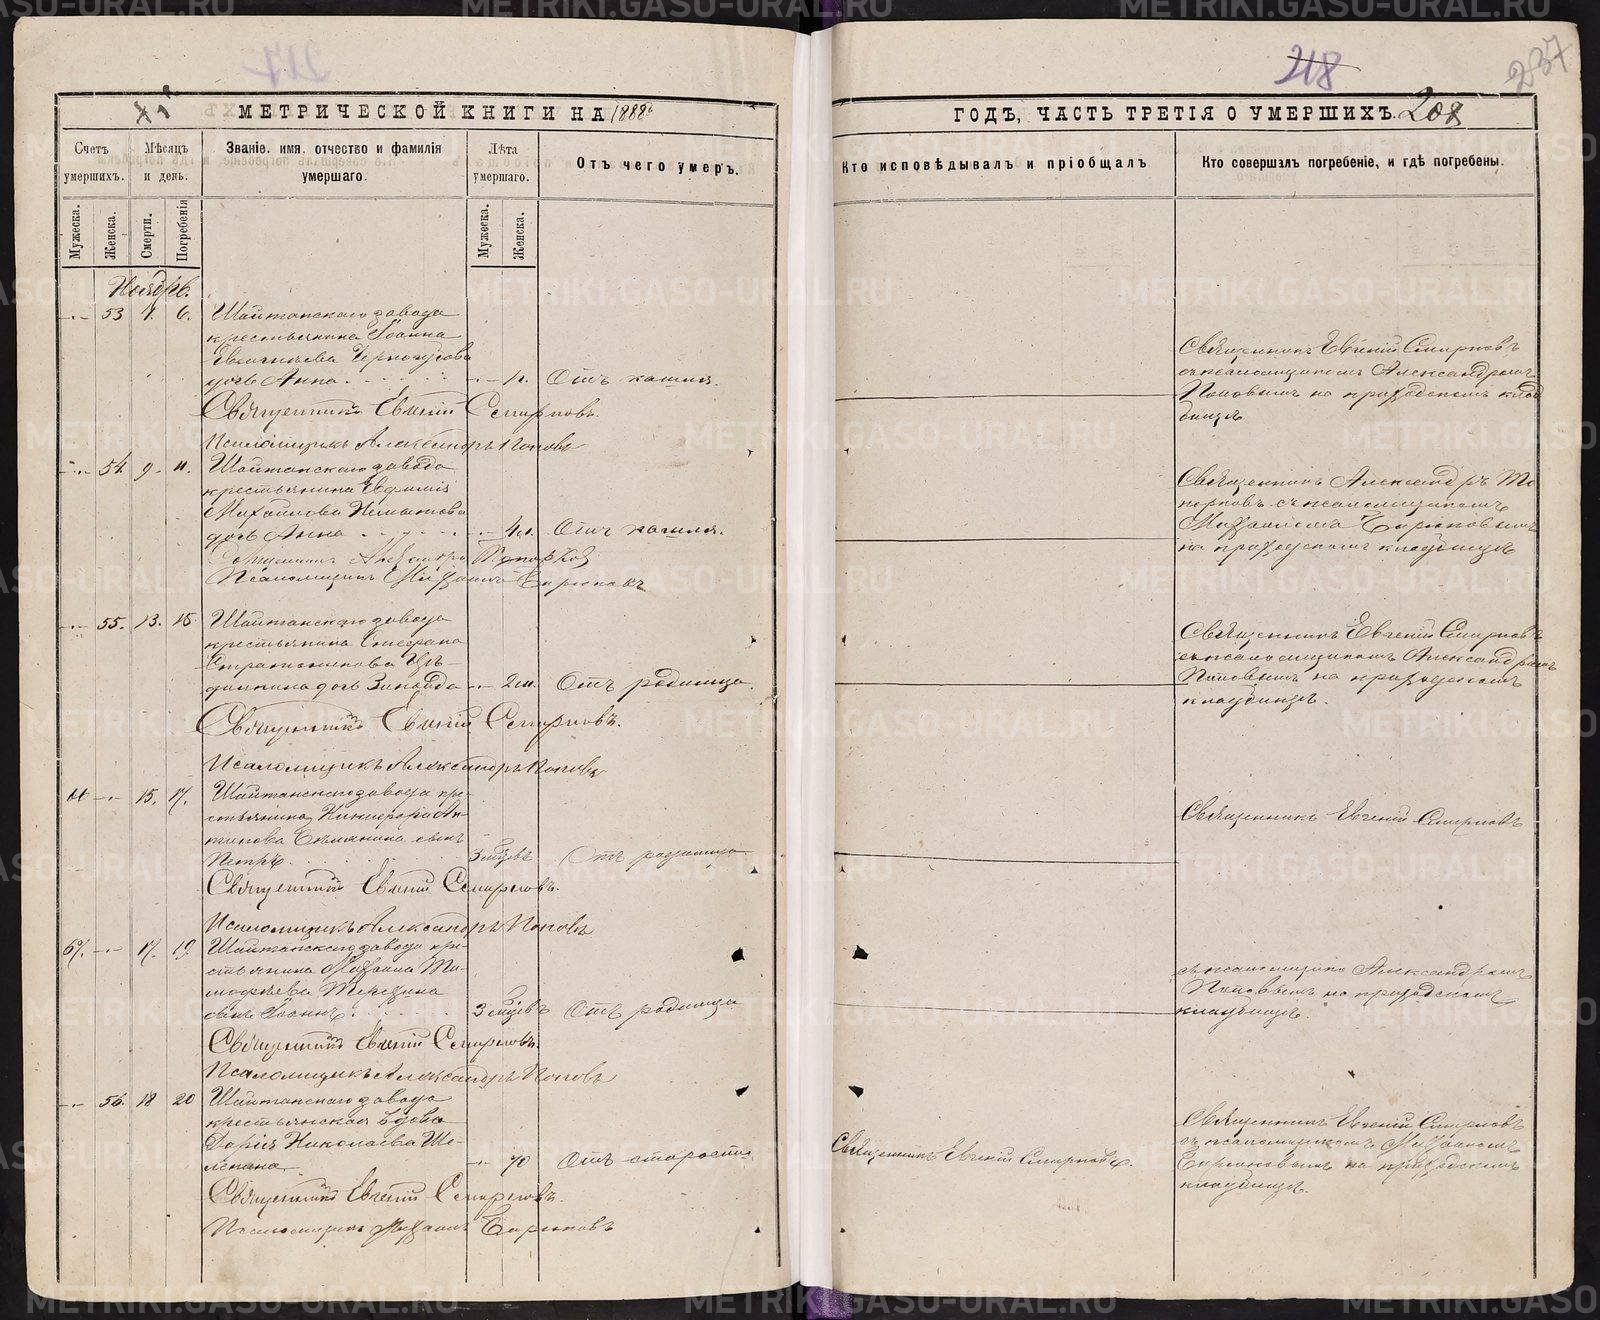 218
237
МЕТРИЧЕСКОЙ КНИГИ НА 1888й
ГОДЪ, ЧАСТЬ ТРЕТІЯ О УМЕРШИХЪ.
208
Счетъ умершихъ.
Мѣсяцъ и день.
Званіе, имя, отчество и фамилія умершаго.
Лѣта умершаго.
Отъ чего умеръ.
Кто исповѣдывалъ и пріобщалъ
Кто совершалъ погребеніе, и гдѣ погребены.
Мужеска.
Женска.
Смерти.
Погребенія
Мужеска.
Женска.
Ноябрь.
53 4. 6. Шайтанскаго завода
крестьянина Іоанна
дочь Анна. 1 г. Отъ кашля.
Священникъ Евгеній Смирновъ
съ псаломщикомъ Александромъ
Поповымъ на приходскомъ клад
бищѣ
Священникъ Евгеній Смирновъ.
Псаломщикъ Александръ Поповъ
54. 9. 11. Шайтанскаго завода
крестьянина Ефимія
Михайлова
дочь Анна 4 Отъ кашля.
Священникъ Александръ То
порковъ съ псаломщикомъ
Михаиломъ Бирюковымъ
на приходскомъ кладбищѣ
Священникъ Александръ Топорковъ
Псаломщикъ Михаилъ Бирюковъ
55. 13. 15 Шайтанскаго завода
крестьянина Стефана
дочь Зинаида 2 Отъ родимца.
Священникъ Евгеній Смирновъ
съ псаломщикомъ Александромъ
Поповымъ на приходскомъ
кладбищѣ.
Священникъ Евгеній Смирновъ.
Псаломщикъ Александръ Поповъ
66 15. 17. Шайтанскаго завода кре-
стьянина Никифора
сынъ
Петръ 3 мѣсц Отъ родимца
Священникъ Евгеній Смирновъ
Священникъ Евгеній Смирновъ.
Псаломщикъ Александръ Поповъ
67. 17. 19. Шайтанскаго завода кре-
стьянина Михаила Ти-
моѳеева
сынъ Іоаннъ 3 мѣсц Отъ родимца
съ псаломщикомъ Александромъ
Поповымъ на приходскомъ
кладбищѣ.
Священникъ Евгеній Смирновъ.
Псаломщикъ Александръ Поповъ
56. 18 20 Шайтанскаго завода
крестьянская вдова
Дарія Николаева Ше-
70 Отъ старости
Священникъ Евгеній Смирновъ.
Священникъ Евгеній Смирновъ
съ псаломщикомъ Михаиломъ
Бирюковымъ на приходскомъ
кладбищѣ.
Священникъ Евгеній Смирновъ.
Псаломщикъ Михаилъ Бирюковъ
METRIKI.GASO-URAL.RU